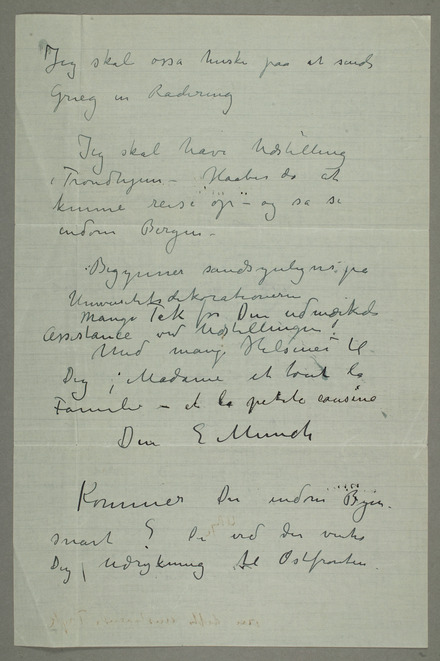 Jeg skal ossa huske paa at sende
Grieg en Radering
Jeg skal have Udstilling
i Trondhjem – Haaber da at
kunne reise og sa se
indom Bergen –
Begynner sandsynligvis på
Universitetsdekorationerne
Mange Tak for Din udmærkede
Assistance ved Udstillingen
Med mange Hilsener til
Dig, Madame et tout la
Familie – et la petite cousine
Din E Munch
Kommer Du indom Byen
snart
Dig Udrykning til Ostfronten.